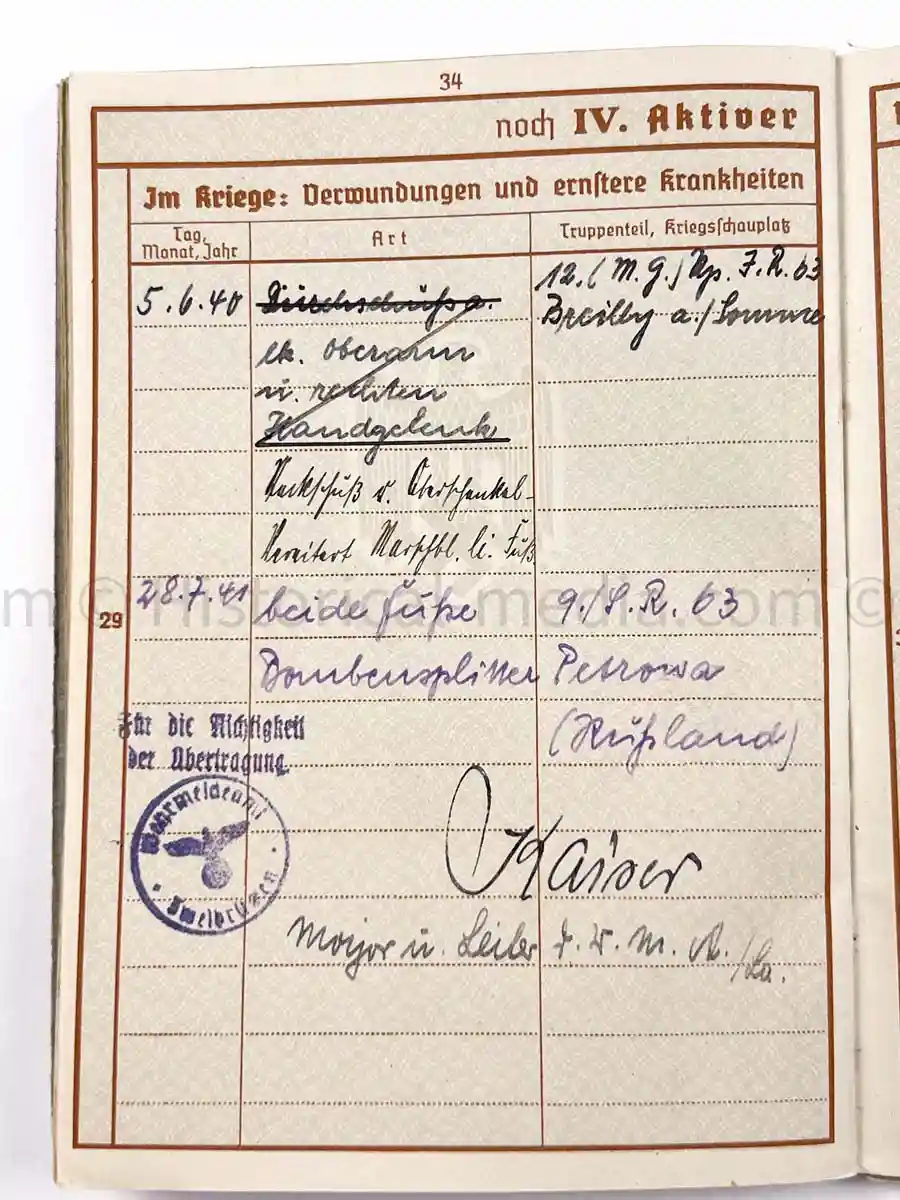 34
noch IV. Aktiver
Im Kriege: Verwundungen und ernstere Krankheiten
Tag, Monat, Jahr
Art
Truppenteil, Kriegsschauplatz
5.6.40 Durchschuß a. 12. (M.G.) Kp. J.R. 63
lk. Oberarm Breilly a./Somme
u. rechten
Handgelenk
Steckschuß r. Oberschenkel-
Vereitert Marschbl. li. Fuß
28.7.41 beide Fuße 9./S.R. 63
29
Bombensplitter Petrowa
(Rußland)
Für die Richtigkeit
der Übertragung
Wehrmeldeamt
Zweibrücken
Kaiser
Major u. Leiter d. W. M. A.
historical-media.com ©